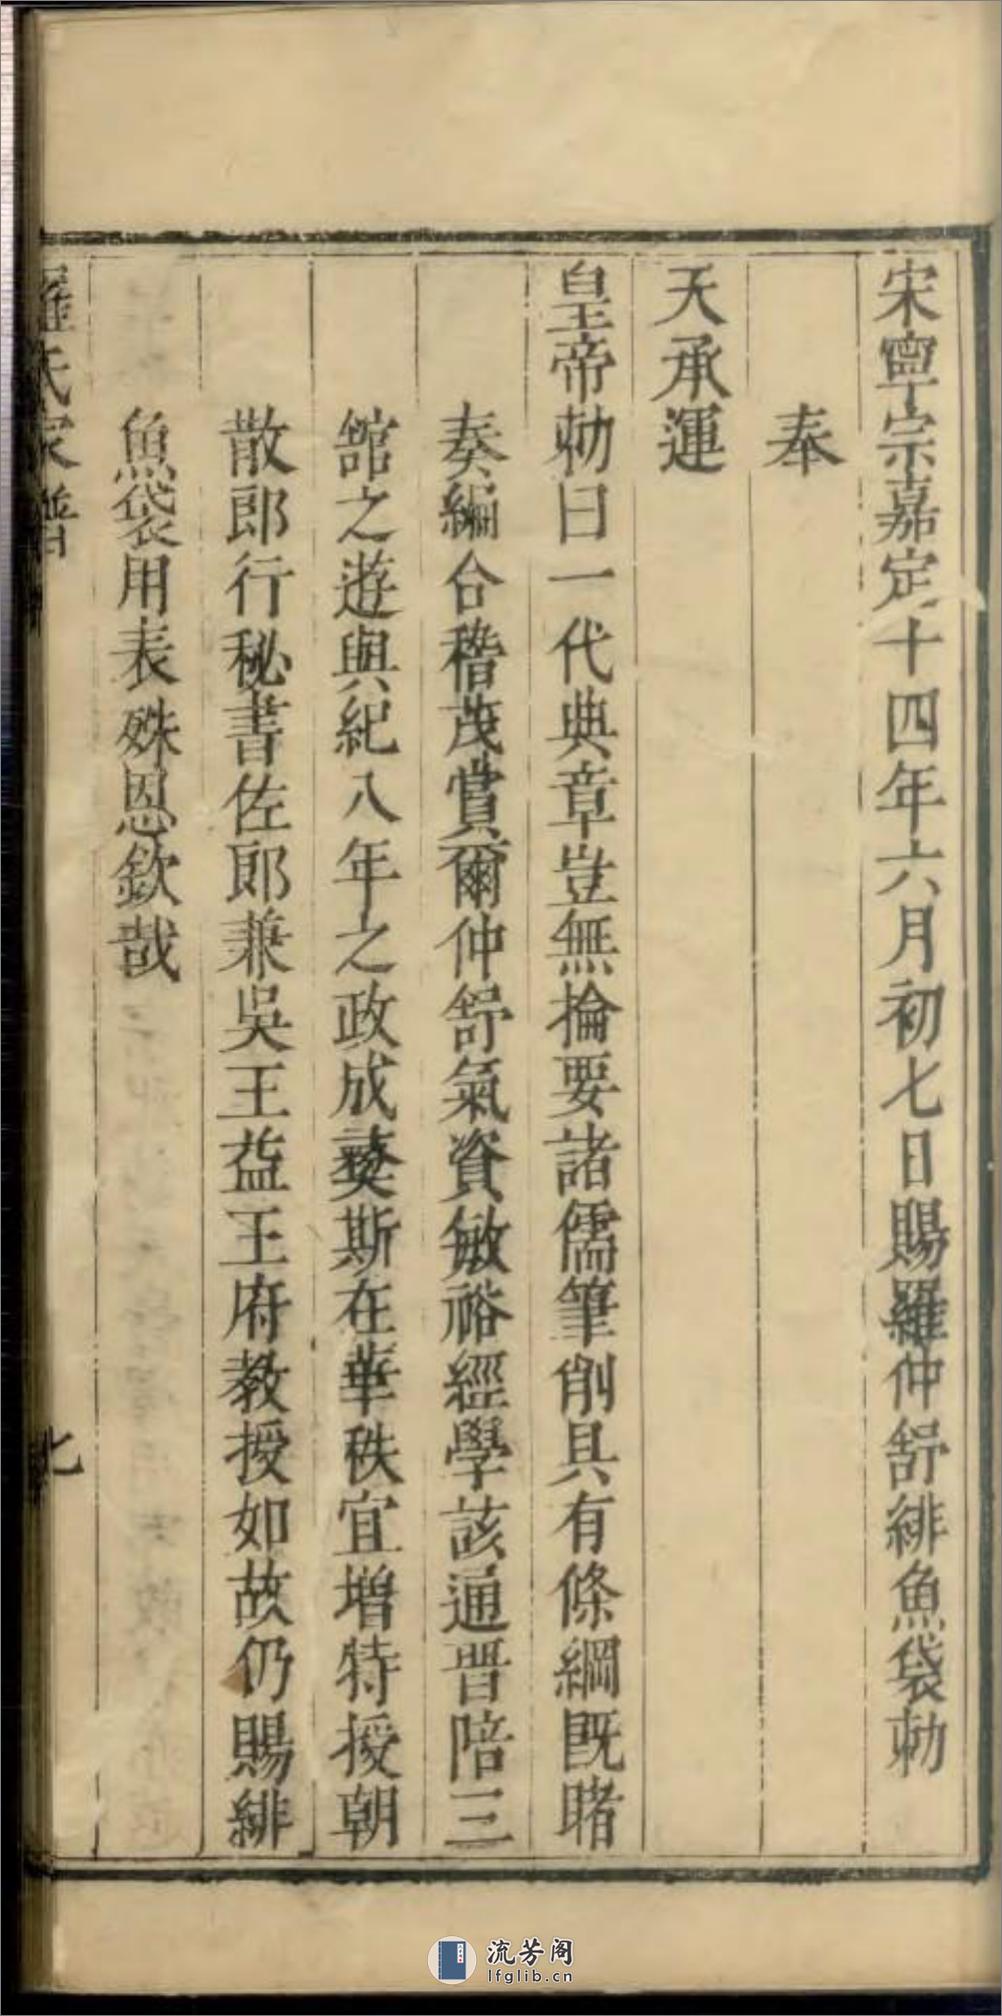 宋寧宗嘉定十四年六月初七日賜羅仲舒緋魚袋勅
奉
天承運
皇帝勅曰一代典章豈無掄要諸儒筆削具有條綱既睹
奏編合稽茂賞爾仲舒氣資敏裕經學該通晋陪三
舘之遊與紀八年之政成斯在華秩宜增特授朝
散郎行秘書佐郎兼吳王益王府教授如故仍賜緋
魚袋用表殊恩欽哉
羅氏家譜
七
流芳阁
lfglib.cn